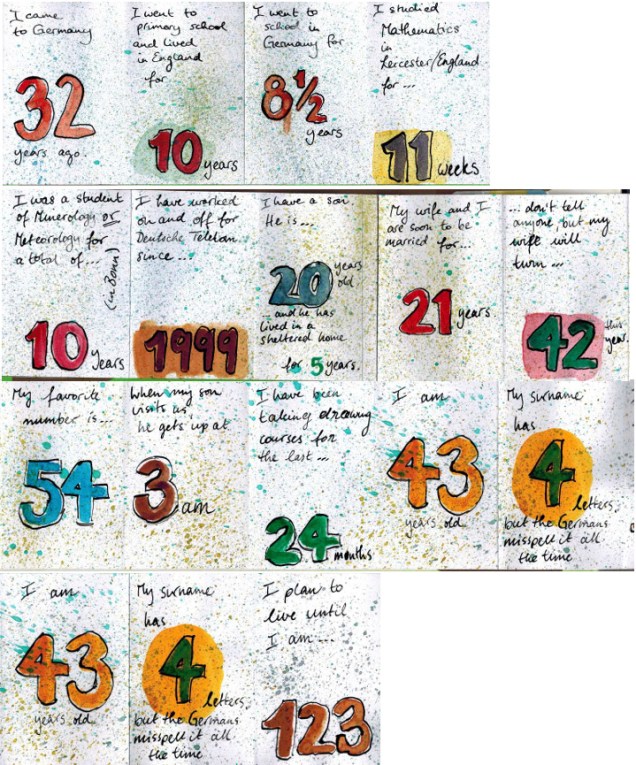 I came
to Germany
32
years ago.
I went to
primary school
and lived
in England
for
10 years
I went to
school in
Germany for
8½
years
I studied
Mathematics
in
Leicester/England
for...
11
weeks
I was a student
of Minerology or
Meteorology for
a total of...
(in Bonn)
10
years
I have worked
on and off for
Deutsche Telekom
since...
1999
I have a son.
He is...
20 years
old
...and he has
lived in a
sheltered home
for 5 years.
My wife and I
are soon to be
married for...
21 years
... don't tell
anyone, but my
wife will
turn...
42 this
year.
My favorite
number is...
54
When my son
visits us
he gets up at
3 am
I have been
taking drawing
courses for
the last...
24 months
I am
43
years old
My surname
has
4
letters,
but the Germans
misspell it all
the time
I am
43
years old
My surname
has
4
letters,
but the Germans
misspell it all
the time
I plan to
live until
I am...
123